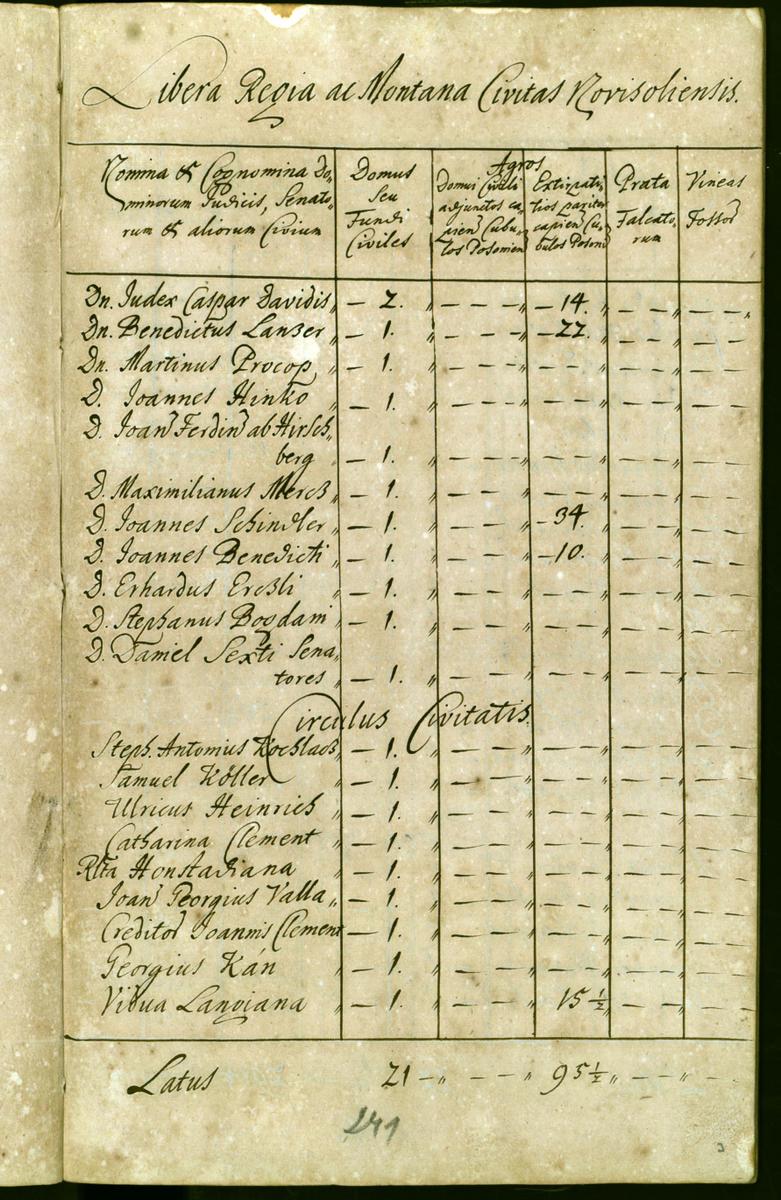 Libera Regia ac Montana Civitas Novisoliensis.
Nomina & Cognomina Do-
minorum Judicis, Senato-
rum & aliorum Civium
Domus
Seu
Fundi
Civiles
Agros
Domui Civili
adjunctos ca-
pien Cubu-
los Posonien
Extirpati-
tios pariter
capien Cu-
bulos Poson
Prata
Falcato-
rum
Vineas
Fossor
Dn. Judex Caspar Davidis „ — 2. „ — — — „ — 14. „ — — „ — — „
Dn. Benedictus Lanzer „ — 1. „ — — — „ — 22. „ — — „ — —
Dn. Martinus Procop „ — 1. „ — — — „ — — — „ — — „ — —
D. Joannes Hinko „ — 1. „ — — — „ — — — „ — — „ — —
D. Joan Ferdin ab Hirsch-
berg „ — 1. „ — — — „ — — — „ — — „ — —
D. Maximilianus Mercz „ — 1. „ — — — „ — — — „ — — „ — —
D. Joannes Schindler „ — 1. „ — — — „ — 34. „ — — „ — —
D. Joannes Benedicti „ — 1. „ — — — „ — 10. „ — — „ — —
D. Erhardus Erczli „ — 1. „ — — — „ — — — „ — — „ — —
D. Stephanus Bogdani „ — 1. „ — — — „ — — — „ — — „ — —
D. Daniel Sexti Sena-
tores „ — 1. „ — — — „ — — — „ — — „ — —
Circulus Civitatis.
Steph. Antonius Kochlacz „ — 1. „ — — — „ — — — „ — — „ — —
Samuel Köller „ — 1. „ — — — „ — — — „ — — „ — —
Ulricus Heinrich „ — 1. „ — — — „ — — — „ — — „ — —
Catharina Clement „ — 1. „ — — — „ — — — „ — — „ — —
Rlta Honstadiana „ — 1. „ — — — „ — — — „ — — „ — —
Joan Georgius Valla „ — 1. „ — — — „ — — — „ — — „ — —
Creditor Joannis Clement — 1. „ — — — „ — — — „ — — „ — —
Georgius Kán „ — 1. „ — — — „ — — — „ — — „ — —
Vidua Langiana „ — 1. „ — — — „ 15 ½ „ — — „ — —
Latus 21 — „ — — — „ 95 ½ „ — — „ — —
241
3